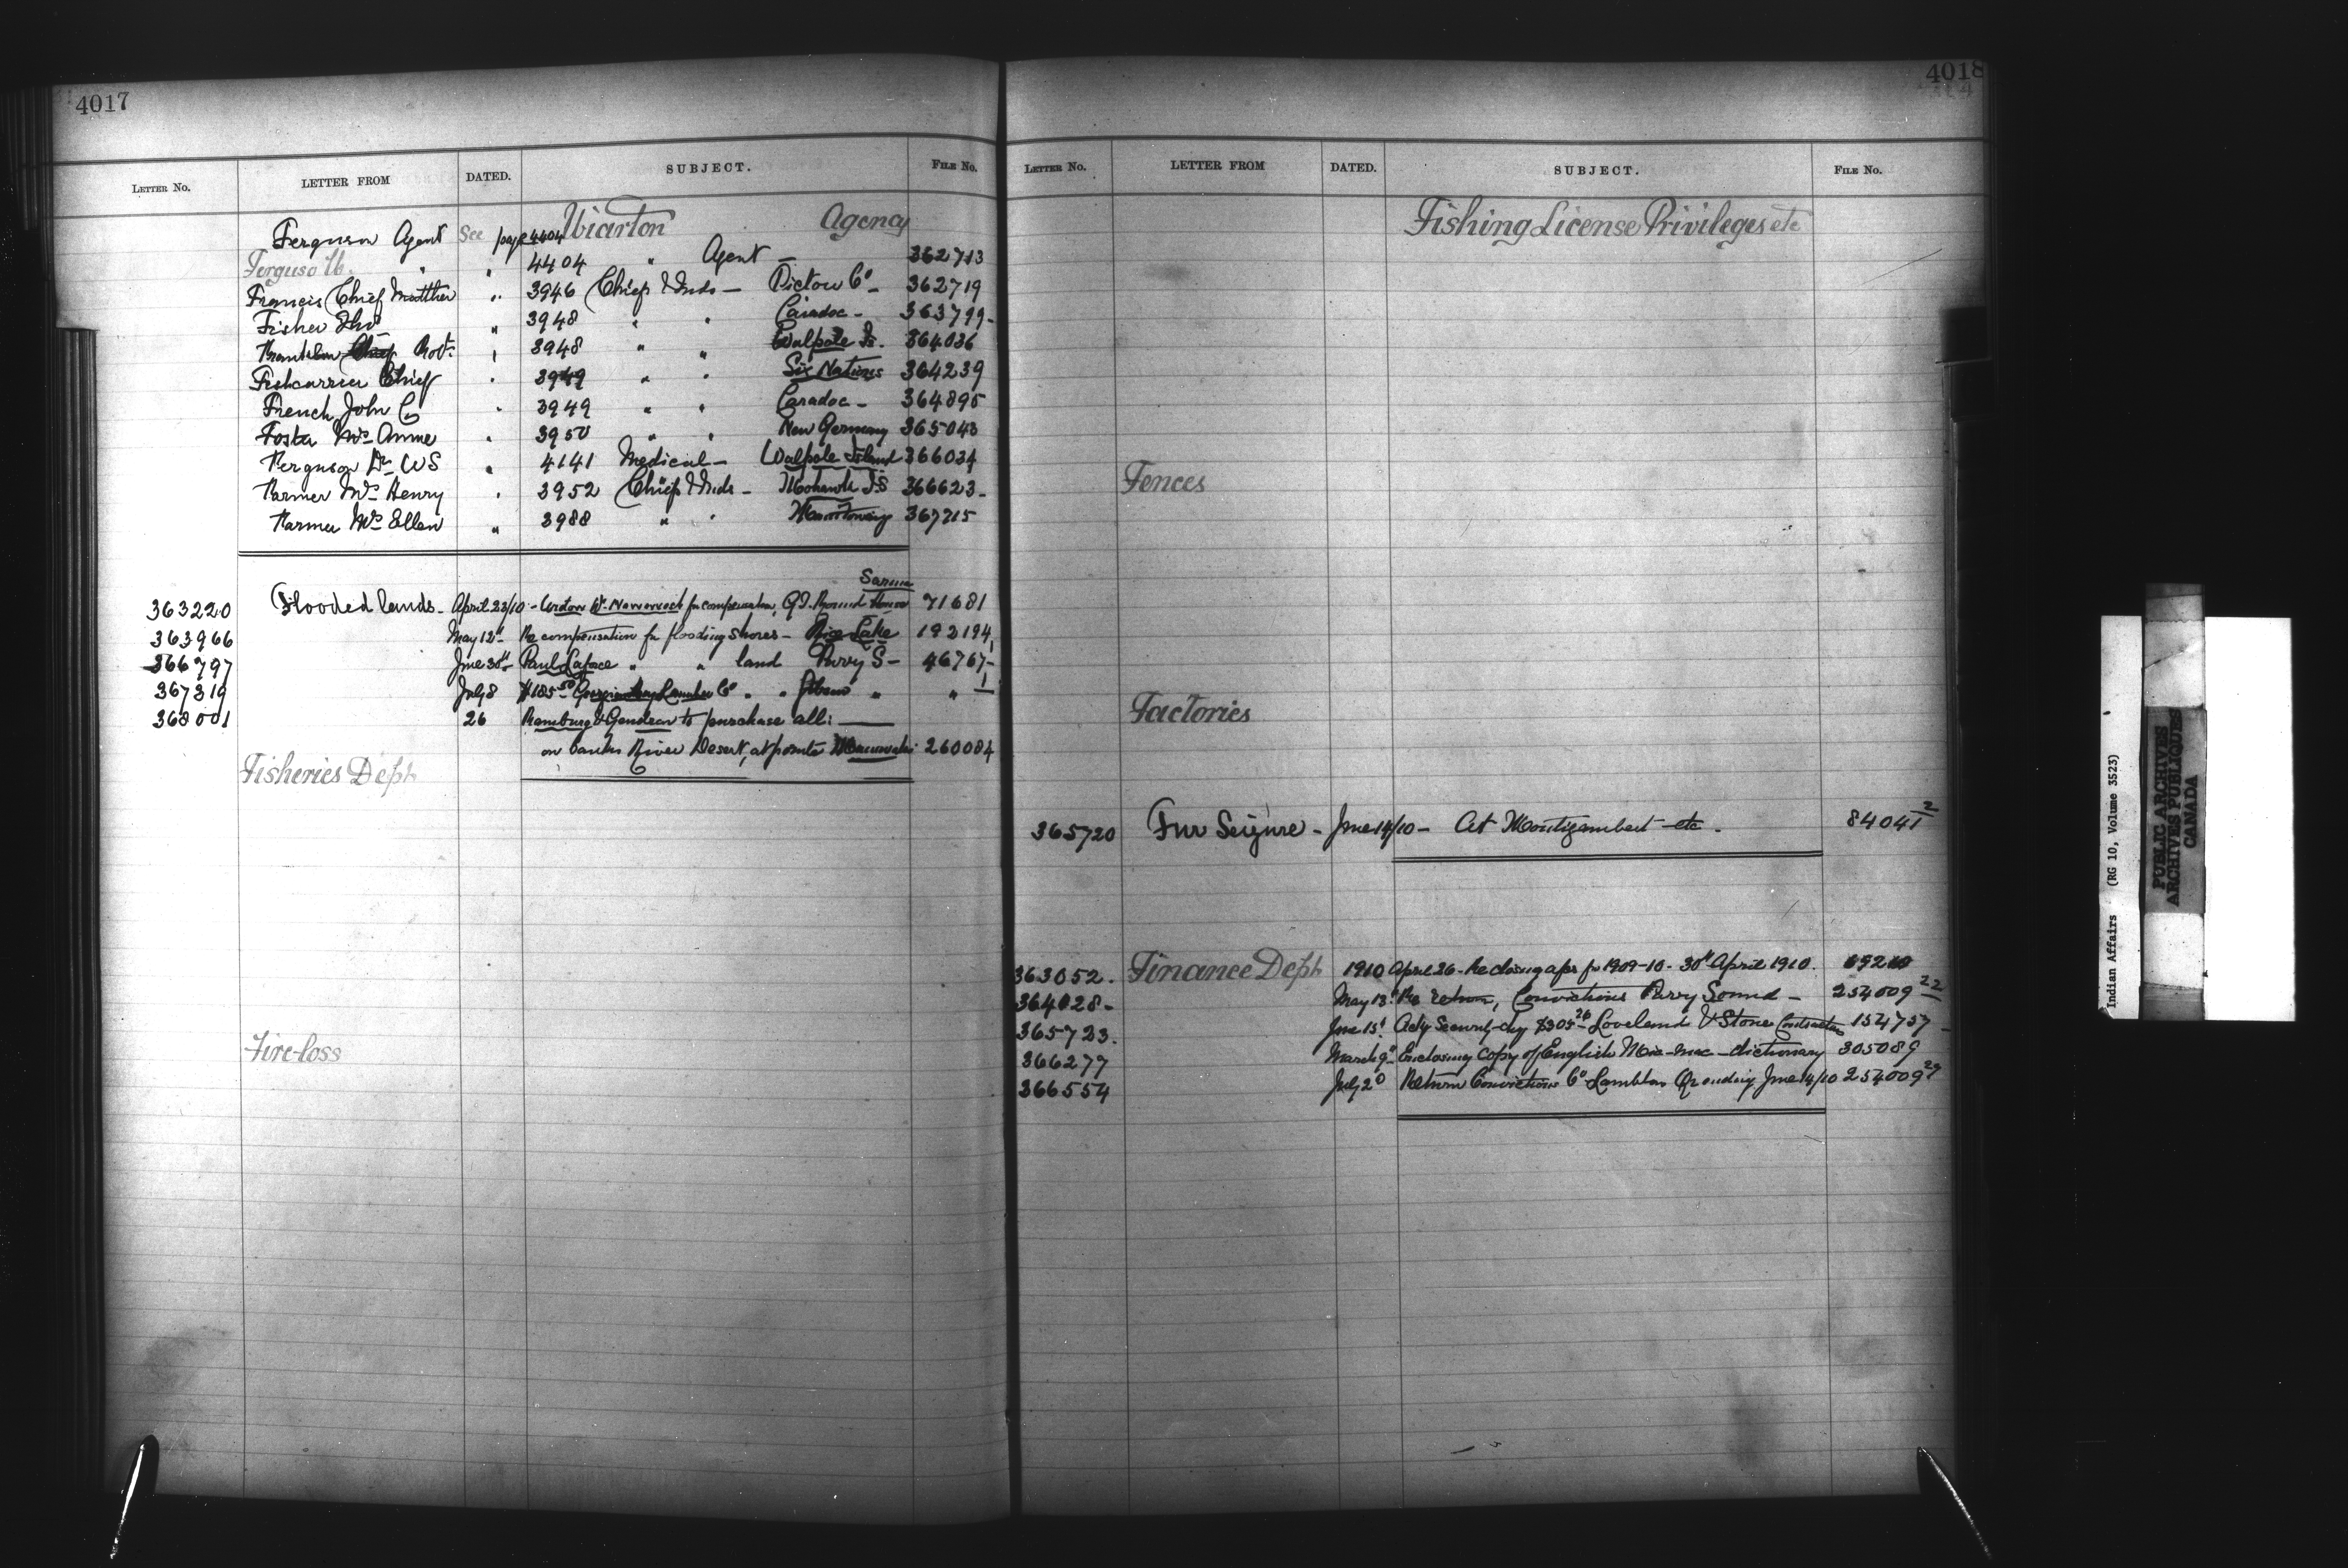 4017
LETTER No. LETTER FROM DATED. SUBJECT. FILE No.
Ferguson Agent See page 4404 Wiarton Agency
" " 4404 " Agent — 362713
Francis (Chief Matthew " 3946 Chiefs & Inds — Pictou Co — 362719
Fisher Thos " 3948 " " Caradoc — 363799 -
Chief Robt. " 3948 " " Walpole Is. 364036
Fishcarrier Chief " 3949 " " Six Nations 364239
French John C " 3949 " " Caradoc — 364895
Foster Mrs Annie " 3950 " " New Germany 365043
Ferguson Dr W S " 4141 Medical — Walpole Island 366034
Farmer Mrs Henry " 3952 Chiefs & Inds — Mohawk Is 366623 -
Farmer Mrs Ellen " 3988 " " Manitowaning 367215
Sarnia
363220 Flooded lands - April 23/10 - for compensation, 71681
363966 May 12th Re compensation for flooding shores — Rice Lake 192194
366797 June 30th Paul " " land Parry S — 46767 -
367319 July 8 $185.50 Lumber Co " " " " 1
368001 26 & Gendron to purchase all:
on banks River Desert, at pointe 260084
Fisheries Dept
Fire-loss
4018
LETTER No. LETTER FROM DATED. SUBJECT. FILE No.
Fishing License Privileges etc
Fences
Factories
365720 Fur Seizure - June 14/10 - At Montizambert etc. 84041 2
363052. Finance Dept 1910 April 26 - Re closing a/cs for 1909-10 - 30th April 1910.
364028 - May 13th Re return, Convictions Parry Sound — 254009 22
365723. June 15th Security $305 26 Loveland & Stone Contractors 154757 -
366277 March 9th Enclosing copy of English Mic-mac — dictionary 305089
366554 July 2d Return Convictions Co Lambton Qr ending June 14/10 254009 29
Indian Affairs (RG 10, Volume 3523)
PUBLIC ARCHIVES
ARCHIVES PUBLIQUES
CANADA